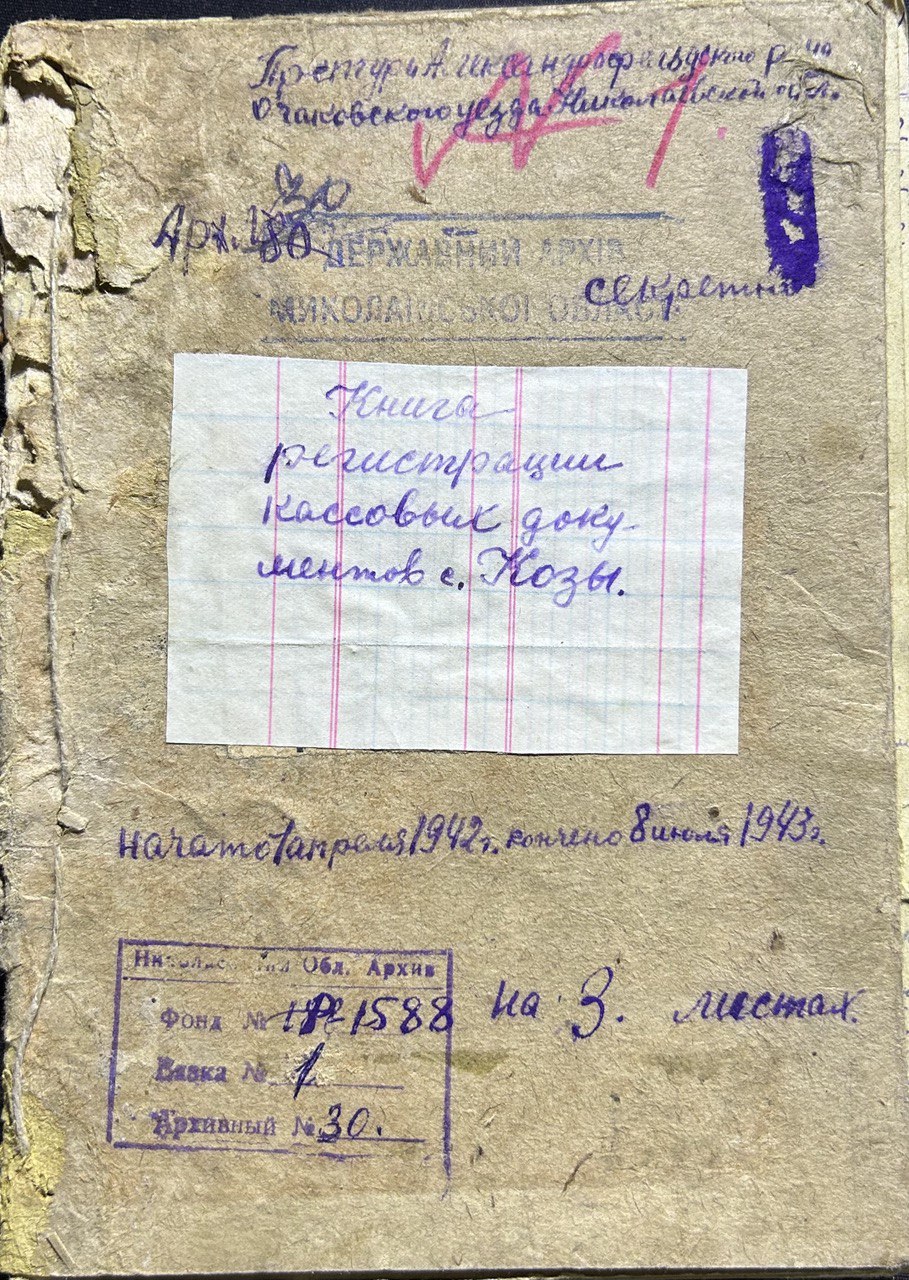 Претура Александрфельдского р-на
Очаковского уезда Николаевской обл.
Арх. 30
80
ДЕРЖАВНИЙ АРХІВ
МИКОЛАЇВСЬКОЇ ОБЛАСТІ
секретно
Книга
регистрации
кассовых доку-
ментов с. Козы.
начато 1 апреля 1942 г. кончено 8 июля 1943 г.
Николаевский Обл. Архив
Фонд № Р-1588
Вязка № 1
Архивный № 30.
на 3. листах.